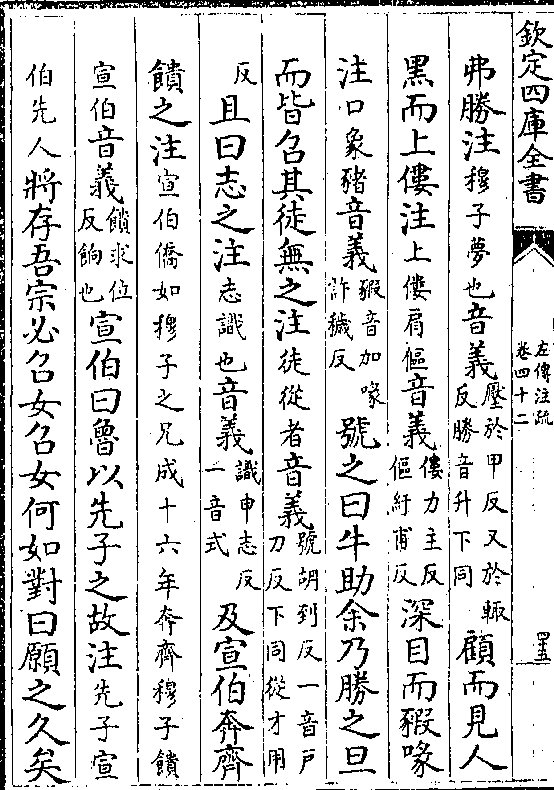 欽定四庫全書
左傳注疏
卷四十二
弗勝注穆子夢也音義壓於甲反又於輒反勝音升下同顧而見人
黑而上僂注上僂肩傴音義僂力主反傴紆甫反深目而豭喙
注口象豬音義豭音加喙許穢反號之曰牛助余乃勝之旦
而皆召其徒無之注徒從者音義號胡到反一音戶刀反下同從才用
反且曰志之注志識也音義識申志反一音式及宣伯奔齊
饋之注宣伯僑如穆子之兄成十六年奔齊穆子饋
宣伯音義饋求位反餉也宣伯曰魯以先子之故注先子宣
伯先人將存吾宗必召女召女何如對曰願之久矣